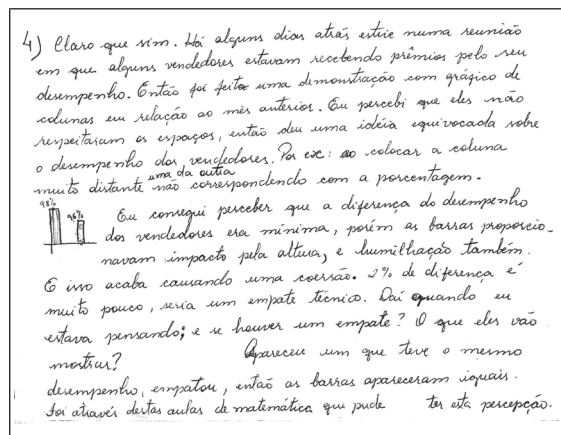 4) Claro que sim. Há alguns dias atrás estive numa reunião
em que alguns vendedores estavam recebendo prêmios pelo seu
desempenho. Então foi feito uma demonstração com gráfico de
colunas em relação ao mês anterior. Eu percebi que eles não
respeitaram os espaços, então deu uma idéia equivocada sobre
o desempenho dos vendedores. Por exe: ao colocar a coluna
muito distante uma da outra não correspondendo com a porcentagem.
98% 96%
Eu consegui perceber que a diferença do desempenho
dos vendedores era mínima, porém as barras proporcio-
navam impacto pela altura, e humilhação também.
E isso acaba causando uma coersão. 2% de diferença é
muito pouco, seria um empate técnico. Daí quando eu
estava pensando; e se houver um empate? O que eles vão
mostrar? Apareceu um que teve o mesmo
desempenho, empatou, então as barras apareceram iguais.
Foi através destas aulas de matemática que pude ter esta percepção.